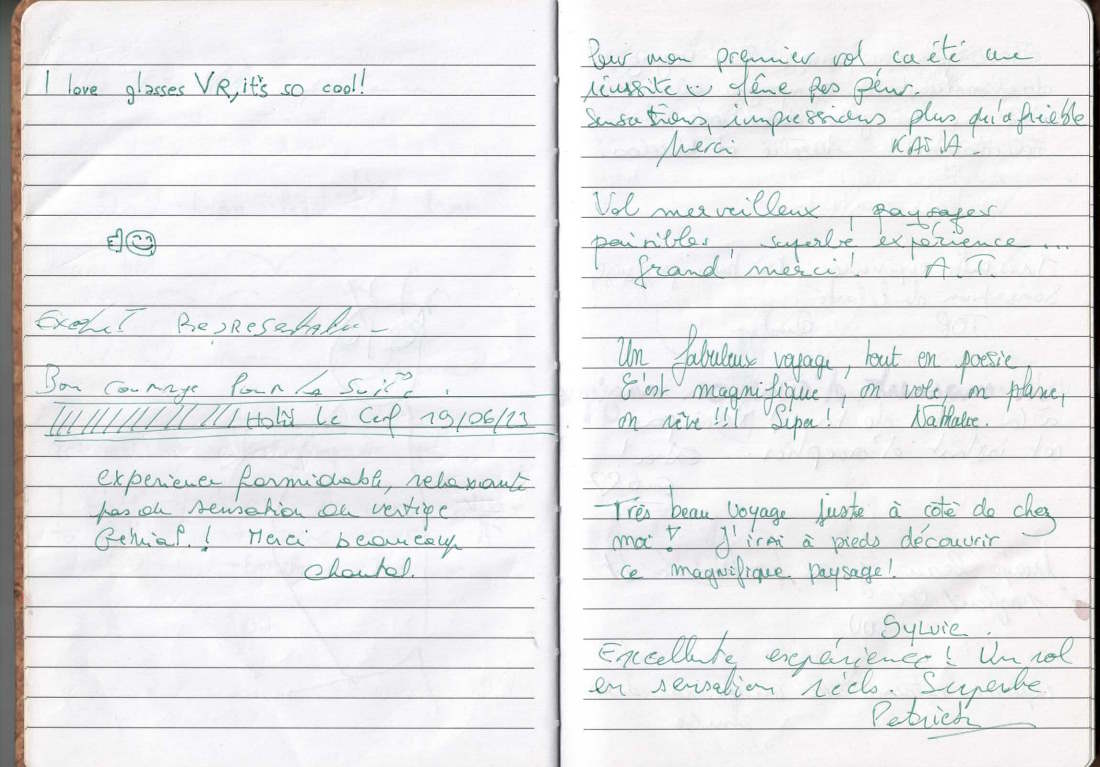 I love glasses VR, it's so cool!
Excellent Representation
Bon courage Pour la Suite.
Hotel Le Cerf 19/06/23
experience formidable, relaxante
pas de sensation de vertige
Génial.! Merci beaucoup
Chantal.
Pour mon premier vol ca été une
réussite Même pas peur.
Sensations, impressions plus qu'agréable
Merci KATIA.
Vol merveilleux, paysages
paisibles, superbe expérience...
Grand merci! A.T
Un fabuleux voyage, tout en poesie
C'est magnifique, on vole, on plane,
on rêve!!! Super! Nathalie.
Très beau voyage juste à côté de chez
moi! J'irai à pieds découvrir
ce magnifique paysage!
Sylvie.
Excellente expérience! Un vol
en sensation réels. Superbe
Patrick